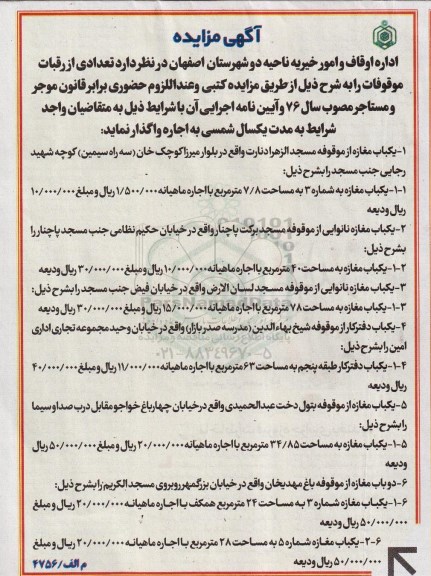 آگهی مزایده
اداره اوقاف و امور خیریه ناحیه دو شهرستان اصفهان در نظر دارد تعدادی از رقبات
موقوفات را به شرح ذیل از طریق مزایده کتبی و عنداللزوم حضوری برابر قانون موجر
و مستاجر مصوب سال ۷۶ و آیین نامه اجرایی آن با شرایط ذیل به متقاضیان واجد
شرایط به مدت یکسال شمسی به اجاره واگذار نماید:
۱-یکباب مغازه از موقوفه مسجد الزهرا دنارت واقع در بلوار میرزا کوچک خان (سه راه سیمین) کوچه شهید
رجایی جنب مسجد را بشرح ذیل:
۱-۱-یکباب مغازه به شماره ۳ به مساحت ۷/۸ مترمربع با اجاره ماهیانه ۱/۵۰۰/۰۰۰ ریال و مبلغ ۱۰/۰۰۰/۰۰۰
ریال ودیعه
۲-یکباب مغازه نانوایی از موقوفه مسجد برکت پاچنار واقع در خیابان حکیم نظامی جنب مسجد پاچنار را
بشرح ذیل:
۱-۲-یکباب مغازه به مساحت ۴۰ مترمربع با اجاره ماهیانه ۱۰/۰۰۰/۰۰۰ ریال و مبلغ ۳۰/۰۰۰/۰۰۰ ریال ودیعه
۳-یکباب مغازه نانوایی از موقوفه مسجد لسان الارض واقع در خیابان فیض جنب مسجد را بشرح ذیل:
۱-۳-یکباب مغازه به مساحت ۷۸ مترمربع با اجاره ماهیانه ۱۵/۰۰۰/۰۰۰ ریال و مبلغ ۳۰/۰۰۰/۰۰۰ ریال ودیعه
۴-یکباب دفترکار از موقوفه شیخ بهاءالدین (مدرسه صدر بازار) واقع در خیابان وحید مجموعه تجاری اداری
امین را بشرح ذیل:
۱-۴-یکباب دفترکار طبقه پنجم به مساحت ۶۳ مترمربع با اجاره ماهیانه ۱۱/۰۰۰/۰۰۰ ریال و مبلغ ۴۰/۰۰۰/۰۰۰
ریال ودیعه
۵-یکباب مغازه از موقوفه بتول دخت عبدالحمیدی واقع در خیابان چهارباغ خواجو مقابل درب صدا و سیما
را بشرح ذیل:
۱-۵-یکباب مغازه به مساحت ۳۴/۸۵ مترمربع با اجاره ماهیانه ۲۰/۰۰۰/۰۰۰ ریال و مبلغ ۵۰/۰۰۰/۰۰۰ ریال
ودیعه
۶-دو باب مغازه از موقوفه باغ مهدیخان واقع در خیابان بزرگمهر روبروی مسجد الکریم را بشرح ذیل:
۱-۶-یکباب مغازه شماره ۳ به مساحت ۲۴ مترمربع همکف با اجاره ماهیانه ۲۰/۰۰۰/۰۰۰ ریال و مبلغ
۵۰/۰۰۰/۰۰۰ ریال ودیعه
۲-۶-یکباب مغازه شماره ۵ به مساحت ۲۸ مترمربع با اجاره ماهیانه ۲۰/۰۰۰/۰۰۰ ریال و مبلغ
۵۰/۰۰۰/۰۰۰ ریال ودیعه
م الف/۴۷۵۶
۰۲۱-۸۸۳۴۹۶۷۰-۵